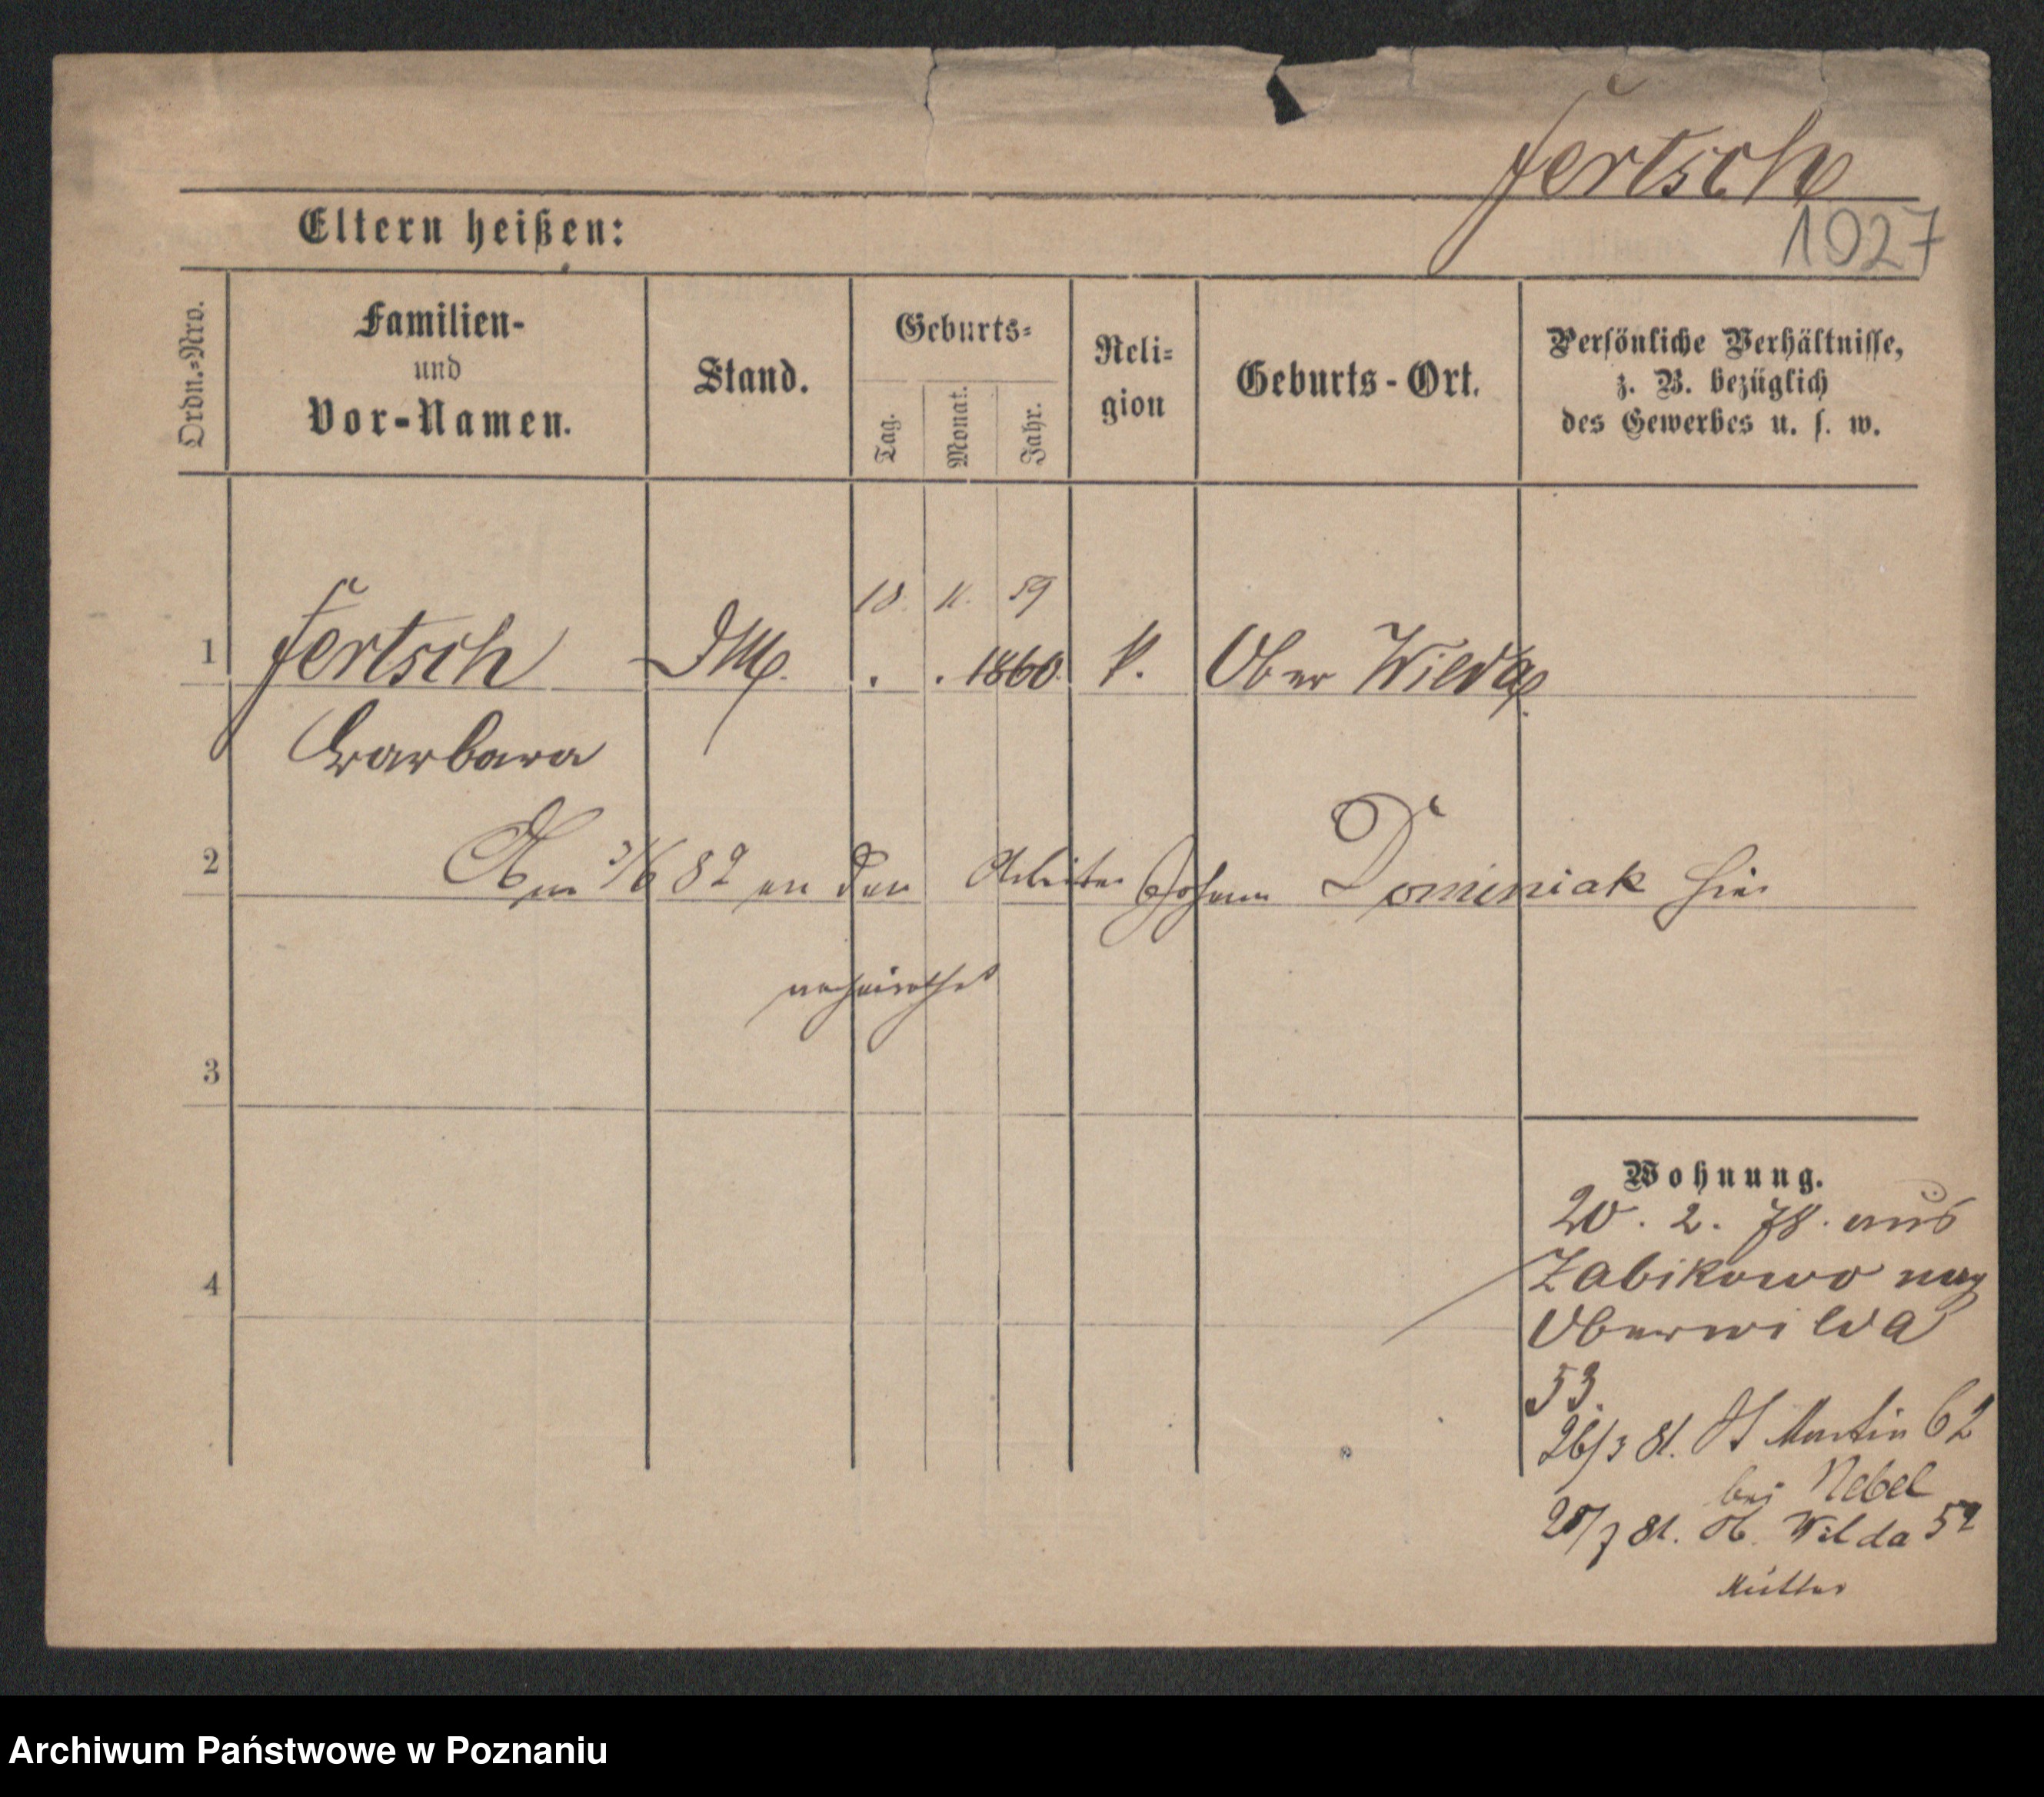 Fertsch
1027
Eltern heißen:
Ordn.-Nro.
Familien-
und
Vor-Namen.
Stand.
Geburts-
Tag.
Monat.
Jahr.
Reli-
gion
Geburts-Ort.
Persönliche Verhältnisse,
z. B. bezüglich
des Gewerbes u. s. w.
18. 11. 59
1 Fertsch DM . . 1860. k. Ober Wilda
Barbara
2 Am 3/6 82 an den Arbeiter Johann Dominiak hier
verheirathet
3
Wohnung.
20. 2. 78. aus
Zabikowo nach
4
Oberwilda
53.
26/3 81. St Martin 62
bei Nebel
28/7 81. Ob. Wilda 52
Mutter
Archiwum Państwowe w Poznaniu